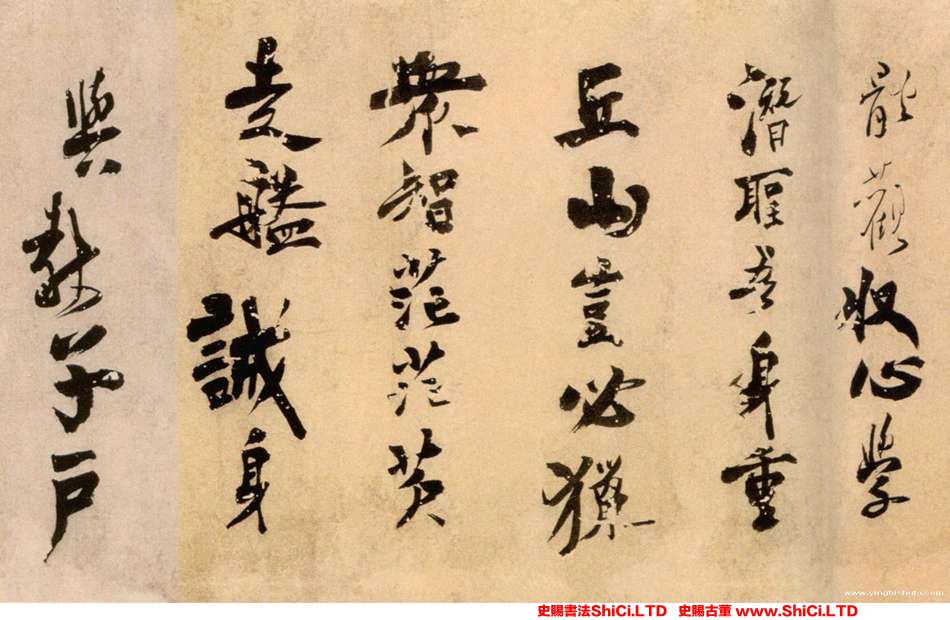 觀收心學
潛聖吾身重
丘山豈必獵
衆智茫茫
誠身
與數戶
史賜書法ShiCi.LTD 史賜古董 www.ShiCi.LTD